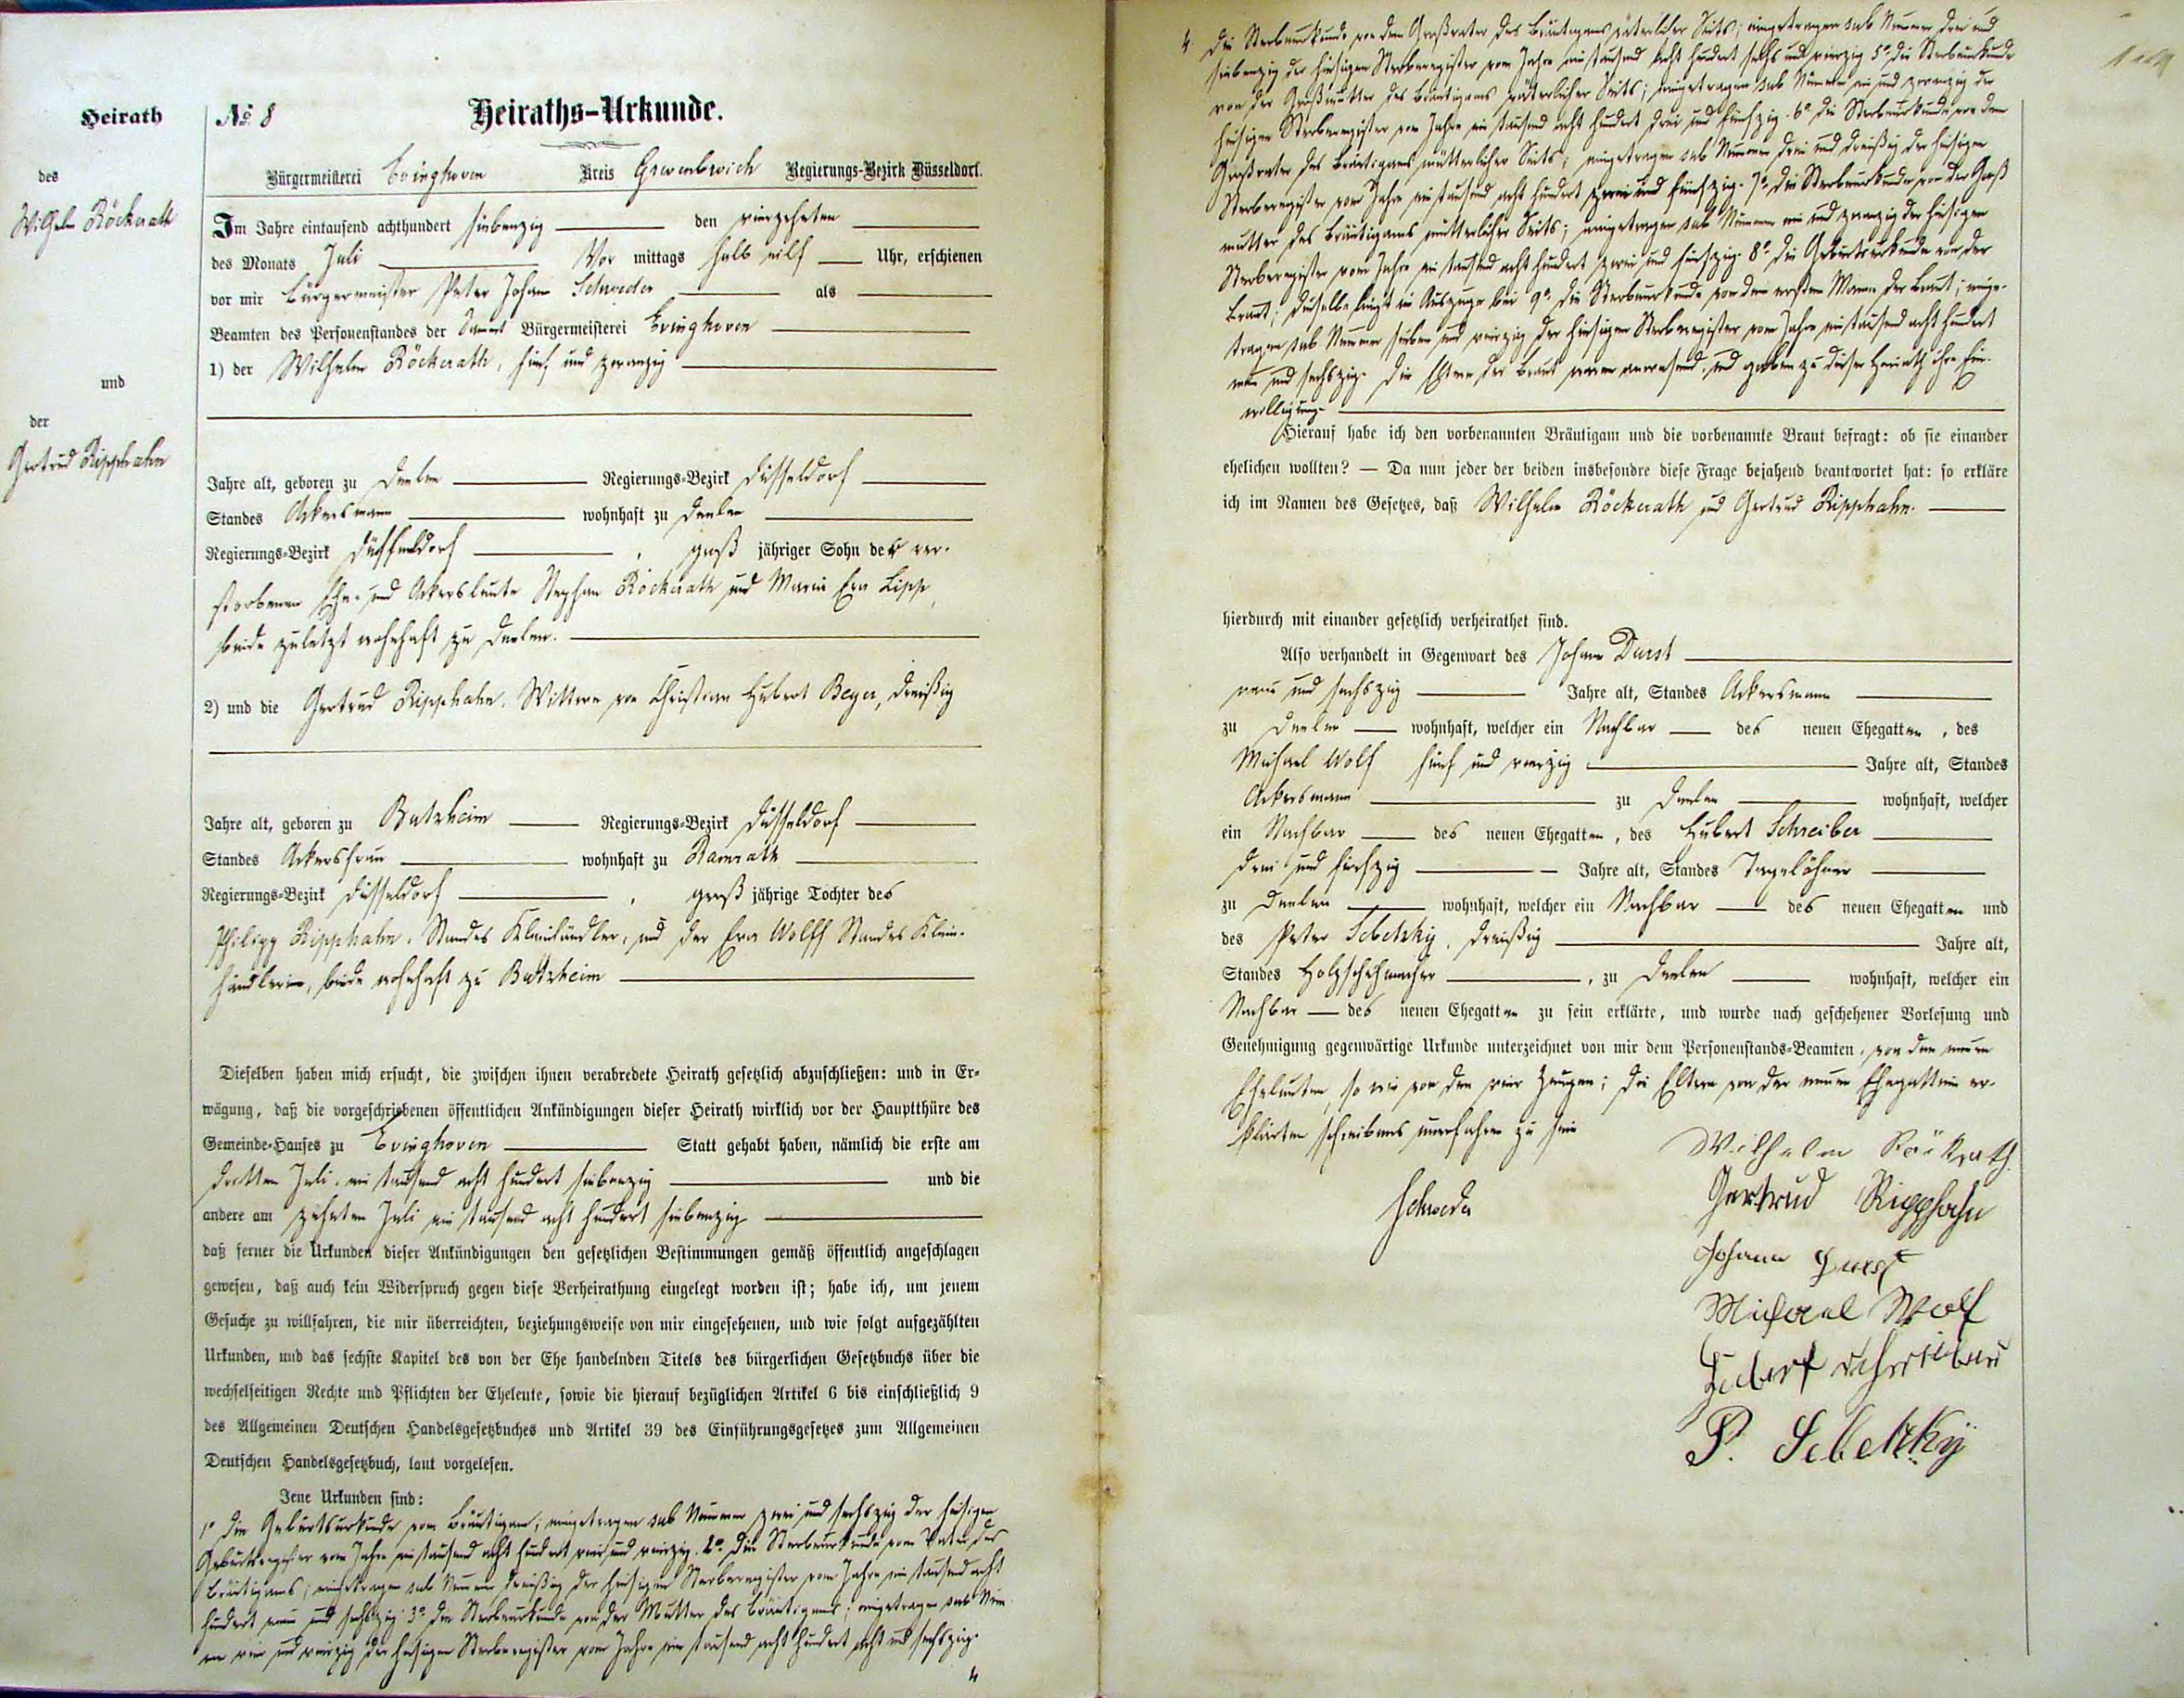 Heirath
des
Wilhelm Röckerath
und
der
Gertrud Ripphahn
No. 8 Heiraths-Urkunde.
Bürgermeisterei Evinghoven Kreis Grevenbroich Regierungs-Bezirk Düsseldorf.
Im Jahre eintausend achthundert siebenzig den vierzehnten
des Monats Juli Vor mittags halb eilf Uhr, erschienen
vor mir Bürgermeister Peter Johann Schroeder als
Beamten des Personenstandes der Sammt Bürgermeisterei Evinghoven
1) der Wilhelm Röckerath, fünf und zwanzig
Jahre alt, geboren zu Deelen Regierungs-Bezirk Düsseldorf
Standes Ackersmann wohnhaft zu Deelen
Regierungs-Bezirk Düsseldorf, groß jähriger Sohn der ver-
storbenen Ehe- und Ackersleute Stephan Röckerath und Maria Eva Lipp,
beide zuletzt wohnhaft zu Deelen.
2) und die Gertrud Ripphahn, Wittwe von Christian Hubert Beyer, dreißig
Jahre alt, geboren zu Butzheim Regierungs-Bezirk Düsseldorf
Standes Ackersfrau wohnhaft zu Ramrath
Regierungs-Bezirk Düsseldorf, groß jährige Tochter des
Philipp Ripphahn, Standes Kleinhändler, und der Eva Wolff Standes Klein-
händlerin, beide wohnhaft zu Butzheim
Dieselben haben mich ersucht, die zwischen ihnen verabredete Heirath gesetzlich abzuschließen: und in Er-
wägung, daß die vorgeschriebenen öffentlichen Ankündigungen dieser Heirath wirklich vor der Hauptthüre des
Gemeinde-Hauses zu Evinghoven Statt gehabt haben, nämlich die erste am
dritten Juli ein tausend acht hundert siebenzig und die
andere am zehnten Juli ein tausend acht hundert siebenzig
daß ferner die Urkunden dieser Ankündigungen den gesetzlichen Bestimmungen gemäß öffentlich angeschlagen
gewesen, daß auch kein Widerspruch gegen diese Verheirathung eingelegt worden ist; habe ich, um jenem
Gesuche zu willfahren, die mir überreichten, beziehungsweise von mir eingesehenen, und wie folgt aufgezählten
Urkunden, und das sechste Kapitel des von der Ehe handelnden Titels des bürgerlichen Gesetzbuchs über die
wechselseitigen Rechte und Pflichten der Eheleute, sowie die hierauf bezüglichen Artikel 6 bis einschließlich 9
des Allgemeinen Deutschen Handelsgesetzbuches und Artikel 39 des Einführungsgesetzes zum Allgemeinen
Deutschen Handelsgesetzbuch, laut vorgelesen.
Jene Urkunden sind:
1° Die Geburtsurkunde vom Bräutigam; eingetragen sub Nummer zwei und sechszig der hiesigen
Geburtsregister vom Jahre eintausend acht hundert vier und vierzig. 2° Die Sterbeurkunde vom Vater des
Bräutigams; eingetragen sub Nummer dreißig der hiesigen Sterberegister vom Jahre ein tausend acht
hundert neun und sechszig. 3° Die Sterbeurkunde von der Mutter des Bräutigams; eingetragen sub Num-
mer vier und vierzig der hiesigen Sterberegister vom Jahre ein tausend acht hundert acht und sechszig.
4
4. Die Sterbeurkunde von dem Großvater des Bräutigams väterlicher Seits; eingetragen sub Nummer drei und
siebenzig der hiesigen Sterberegister vom Jahre eintausend acht hundert sechs und vierzig 5° Die Sterbeurkunde
von der Großmutter des Bräutigams väterlicher Seits; eingetragen sub Nummer ein und zwanzig der
hiesigen Sterberegister vom Jahre ein tausend acht hundert drei und fünfzig. 6° Die Sterbeurkunde von dem
Großvater des Bräutigams mütterlicher Seits; eingetragen sub Nummer drei und dreißig der hiesigen
Sterberegister vom Jahre ein tausend acht hundert zwei und fünfzig. 7° Die Sterbeurkunde von der Groß
mutter des Bräutigams mütterlicher Seits; eingetragen sub Nummer ein und zwanzig der hiesigen
Sterberegister vom Jahre ein tausend acht hundert zwei und fünfzig. 8° Die Geburtsurkunde von der
Braut; dieselbe liegt im Auszuge bei 9° Die Sterbeurkunde von dem ersten Manne der Braut; einge-
tragen sub Nummer sieben und vierzig der hiesigen Sterberegister vom Jahre ein tausend acht hundert
neun und sechszig. Die Eltern der Braut waren anwesend, und gaben zu dieser Heirath ihre Ein-
willigung.
Hierauf habe ich den vorbenannten Bräutigam und die vorbenannte Braut befragt: ob sie einander
ehelichen wollten? — Da nun jeder der beiden insbesondre diese Frage bejahend beantwortet hat: so erkläre
ich im Namen des Gesetzes, daß Wilhelm Röckerath und Gertrud Ripphahn.
hierdurch mit einander gesetzlich verheirathet sind.
Also verhandelt in Gegenwart des Johann Durst
neun und sechszig Jahre alt, Standes Ackersmann
zu Deelen wohnhaft, welcher ein Nachbar des neuen Ehegatten, des
Michael Wolf fünf und vierzig Jahre alt, Standes
Ackersmann zu Deelen wohnhaft, welcher
ein Nachbar des neuen Ehegatten, des Hubert Schreiber
drei und fünfzig Jahre alt, Standes Tagelöhner
zu Deelen wohnhaft, welcher ein Nachbar des neuen Ehegatten und
des Peter Sebetzky, dreißig Jahre alt,
Standes Holzschuhmacher, zu Deelen wohnhaft, welcher ein
Nachbar des neuen Ehegatten zu sein erklärte, und wurde nach geschehener Vorlesung und
Genehmigung gegenwärtige Urkunde unterzeichnet von mir dem Personenstands-Beamten, von den neuen
Eheleuten, so wie von den vier Zeugen; die Eltern von der neuen Ehegattin er-
klärten schreibens unerfahren zu sein
Wilhelm Röckrath
Schroeder
Gertrud Ripphahn
Johann Durst
Michael Wolf
Hubert Schreiber
P. Sebetzky